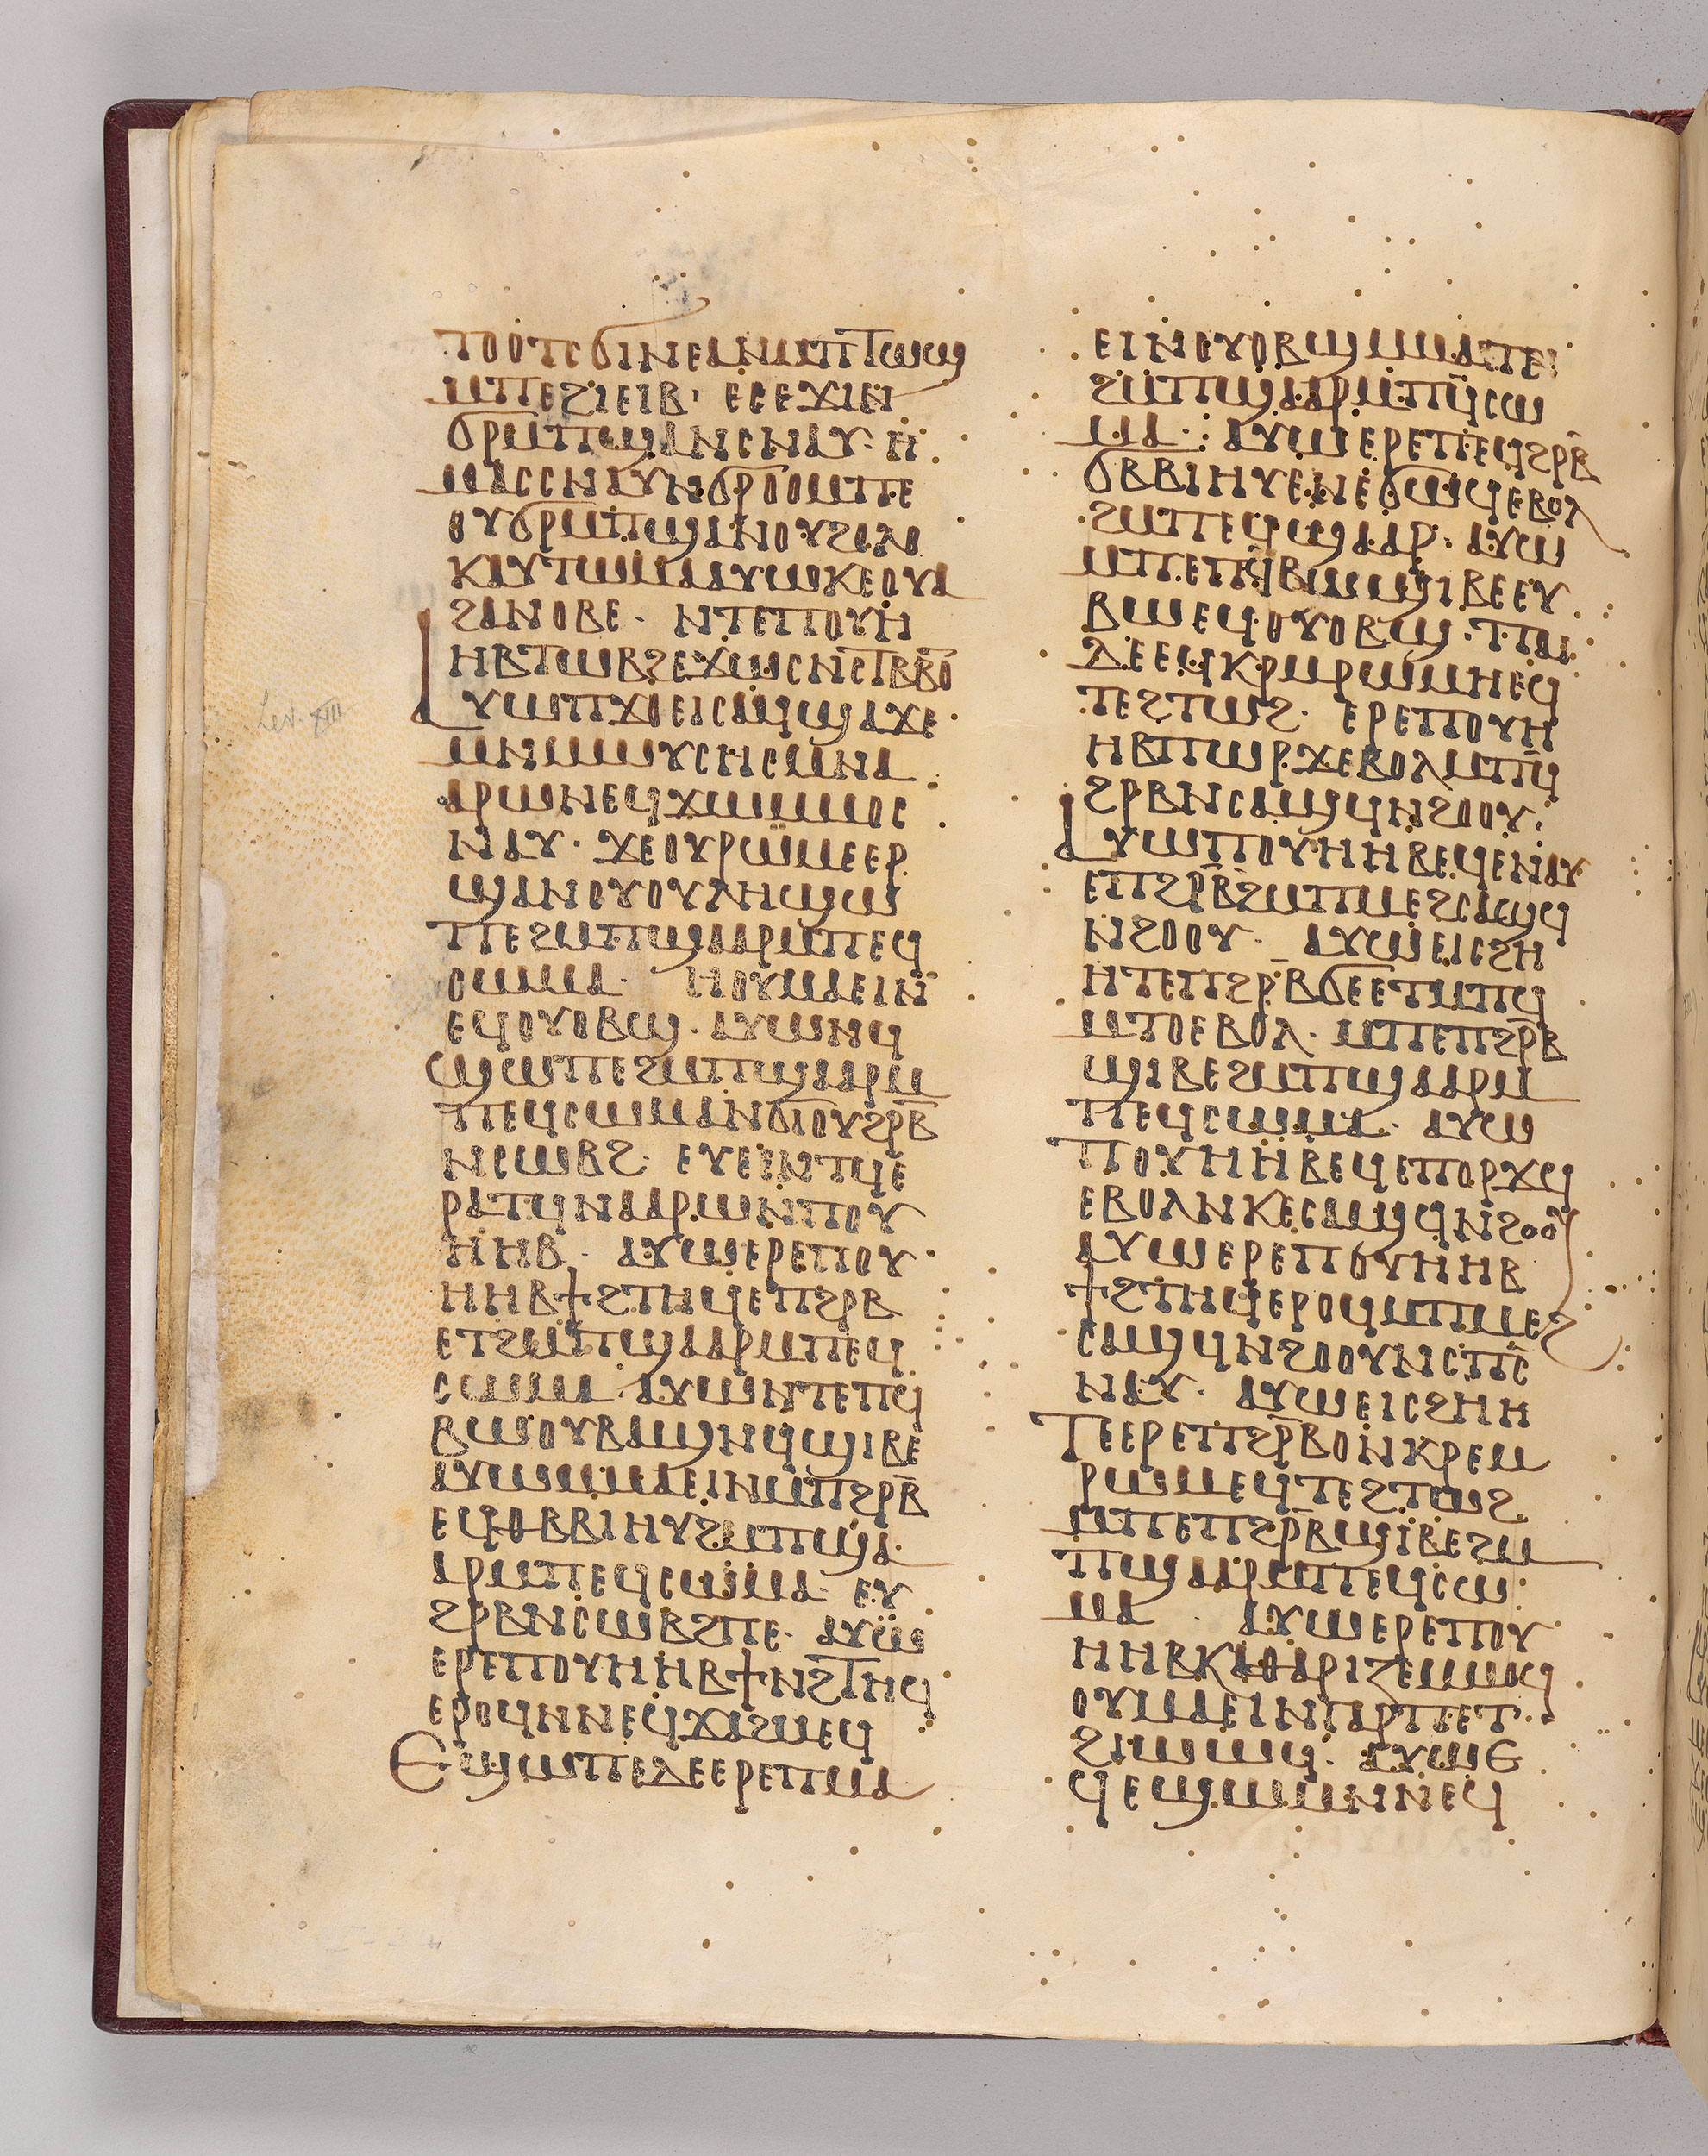 ⲧⲟⲟⲧⲥϭⲓⲛⲉⲁⲛⲙⲡⲧⲱϣ
ⲙⲡⲉϩⲓⲉⲓⲃ· ⲉⲥⲉϫⲓⲛ
ϭⲣⲙⲡϣⲁⲛⲥⲛⲁⲩ· ⲏ
ⲙⲁⲥⲥⲛⲁⲩⲛϭⲣⲟⲟⲙⲡⲉ
ⲟⲩϭⲣⲙⲡϣⲁⲛⲟⲩϩⲟⲗⲟ
ⲕⲁⲩⲧⲱⲙⲁⲁⲩⲱⲕⲉⲟⲩⲁ
ϩⲁⲛⲟⲃⲉ· ⲛⲧⲉⲡⲟⲩⲏ
ⲏⲃⲧⲱⲃϩⲉϫⲱⲥⲛⲥⲧⲃⲃⲟ
ⲁⲩⲱⲡϫⲟⲉⲓⲥⲁϥϣⲁϫⲉ·
ⲙⲛⲙⲱⲩⲥⲏⲥⲙⲛⲁ
ⲁⲣⲱⲛⲉϥϫⲱⲙⲙⲟⲥ
ⲛⲁⲩ· ϫⲉⲟⲩⲣⲱⲙⲉⲉⲣ
ϣⲁⲛⲟⲩⲟⲩⲗⲏϣⲱ
ⲡⲉϩⲙⲡϣⲁⲁⲣⲙⲡⲉϥ
ⲥⲱⲙⲁ· ⲏⲟⲩⲙⲁⲉⲓⲛ
ⲉϥⲟⲩⲟⲃϣ· ⲁⲩⲱⲛϥ
ϣⲱⲡⲉϩⲙⲡϣⲁⲁⲣⲙ
ⲡⲉϥⲥⲱⲙⲁⲛϭⲓⲟⲩϩⲣⲃ
ⲛⲥⲱⲃϩ· ⲉⲩⲉⲓⲛⲧϥⲉ
ⲣⲁⲧϥⲛⲁⲁⲣⲱⲛⲡⲟⲩ
ⲏⲏⲃ· ⲁⲩⲱⲉⲣⲉⲡⲟⲩ
ⲏⲏⲃϯϩⲧⲏϥⲉⲡϩⲣⲃ
ⲉⲧϩⲙⲡϣⲁⲁⲣⲙⲡⲉϥ
ⲥⲱⲙⲁ· ⲁⲩⲱⲛⲧⲉⲡϥ
ⲃⲱⲟⲩⲃⲁϣⲛϥϣⲓⲃⲉ
ⲁⲩⲱⲙⲙⲁⲉⲓⲛⲙⲡϩⲣⲃ
ⲉϥⲑⲃⲃⲓⲏⲩϩⲙⲡϣⲁ
ⲁⲣⲙⲡⲉϥⲥⲱⲙⲁ· ⲉⲩ
ϩⲣⲃⲛⲥⲱⲃϩⲡⲉ· ⲁⲩⲱ
ⲉⲣⲉⲡⲟⲩⲏⲏⲃϯⲛϩⲧⲏϥ
ⲉⲣⲟϥⲛⲛⲉϥϫⲁϩⲙⲉϥ
ⲉϣⲱⲡⲉⲇⲉⲉⲣⲉⲡⲙⲁ
ⲉⲓⲛⲟⲩⲟⲃϣⲙⲙⲁⲧⲉ
ϩⲙⲡϣⲁⲁⲣⲙⲡϥⲥⲱ
ⲙⲁ· ⲁⲩⲱⲉⲣⲉⲡⲉϥϩⲣⲃ
ϭⲃⲃⲓⲏⲩⲉⲛⲉϭⲱϥⲉⲃⲟⲗ
ϩⲙⲡⲉϥϣⲁⲁⲣ· ⲁⲩⲱ
ⲙⲡⲉⲡϥⲃⲱϣⲓⲃⲉⲉⲩ
ⲃⲱⲉϥⲟⲩⲟⲃϣ· ⲧⲟⲓ
ⲇⲉⲉϥⲕⲣⲙⲣⲱⲙⲏⲉϥ
ⲧⲉϩⲧⲱϩ· ⲉⲣⲉⲡⲟⲩⲏ
ⲏⲃⲡⲱⲣϫⲉⲃⲟⲗⲙⲡϥ
ϩⲣⲃⲛⲥⲁϣϥⲛϩⲟⲟⲩ·
ⲁⲩⲱⲡⲟⲩⲏⲏⲃⲉϥⲉⲛⲁⲩ
ⲉⲡϩⲣⲃϩⲙⲡⲙⲉϩⲥⲁϣϥ
ⲛϩⲟⲟⲩ· ⲁⲩⲱⲉⲓⲥϩⲏ
ⲏⲧⲉⲡϩⲣⲃϭⲉⲉⲧⲙⲡϥ
ⲙⲧⲟⲉⲃⲟⲗ· ⲙⲡⲉⲡϩⲣⲃ
ϣⲓⲃⲉϩⲙⲡϣⲁⲁⲣⲙ
ⲡⲉϥⲥⲱⲙⲁ· ⲁⲩⲱ
ⲡⲟⲩⲏⲏⲃⲉϥⲉⲡⲟⲣϫϥ
ⲉⲃⲟⲗⲛⲕⲉⲥⲁϣϥⲛϩⲟⲟⲩ
ⲁⲩⲱⲉⲣⲉⲡⲟⲩⲏⲏⲃ
ϯϩⲧⲏϥⲉⲣⲟϥⲙⲡⲙⲉϩ
ⲥⲁϣϥⲛϩⲟⲟⲩⲛⲥⲡⲥ
ⲛⲁⲩ· ⲁⲩⲱⲉⲓⲥϩⲏⲏ
ⲧⲉⲉⲣⲉⲡϩⲣⲃⲟⲛⲕⲣⲉⲙ
ⲣⲱⲙⲉϥⲧⲉϩⲧⲱϩ
ⲙⲡⲉⲡϩⲣⲃϣⲓⲃⲉϩⲙ
ⲡϣⲁⲁⲣⲙⲡⲉϥⲥⲱ
ⲙⲁ· ⲁⲩⲱⲉⲣⲉⲡⲟⲩ
ⲏⲏⲃⲕⲁⲑⲁⲣⲓⲍⲉⲙⲙⲟϥ
ⲟⲩⲙⲁⲉⲓⲛⲅⲁⲣⲡⲉⲧ
ϩⲓⲱⲱϥ· ⲁⲩⲱⲉ
ϥⲉϣⲱⲙⲛⲛⲉϥ